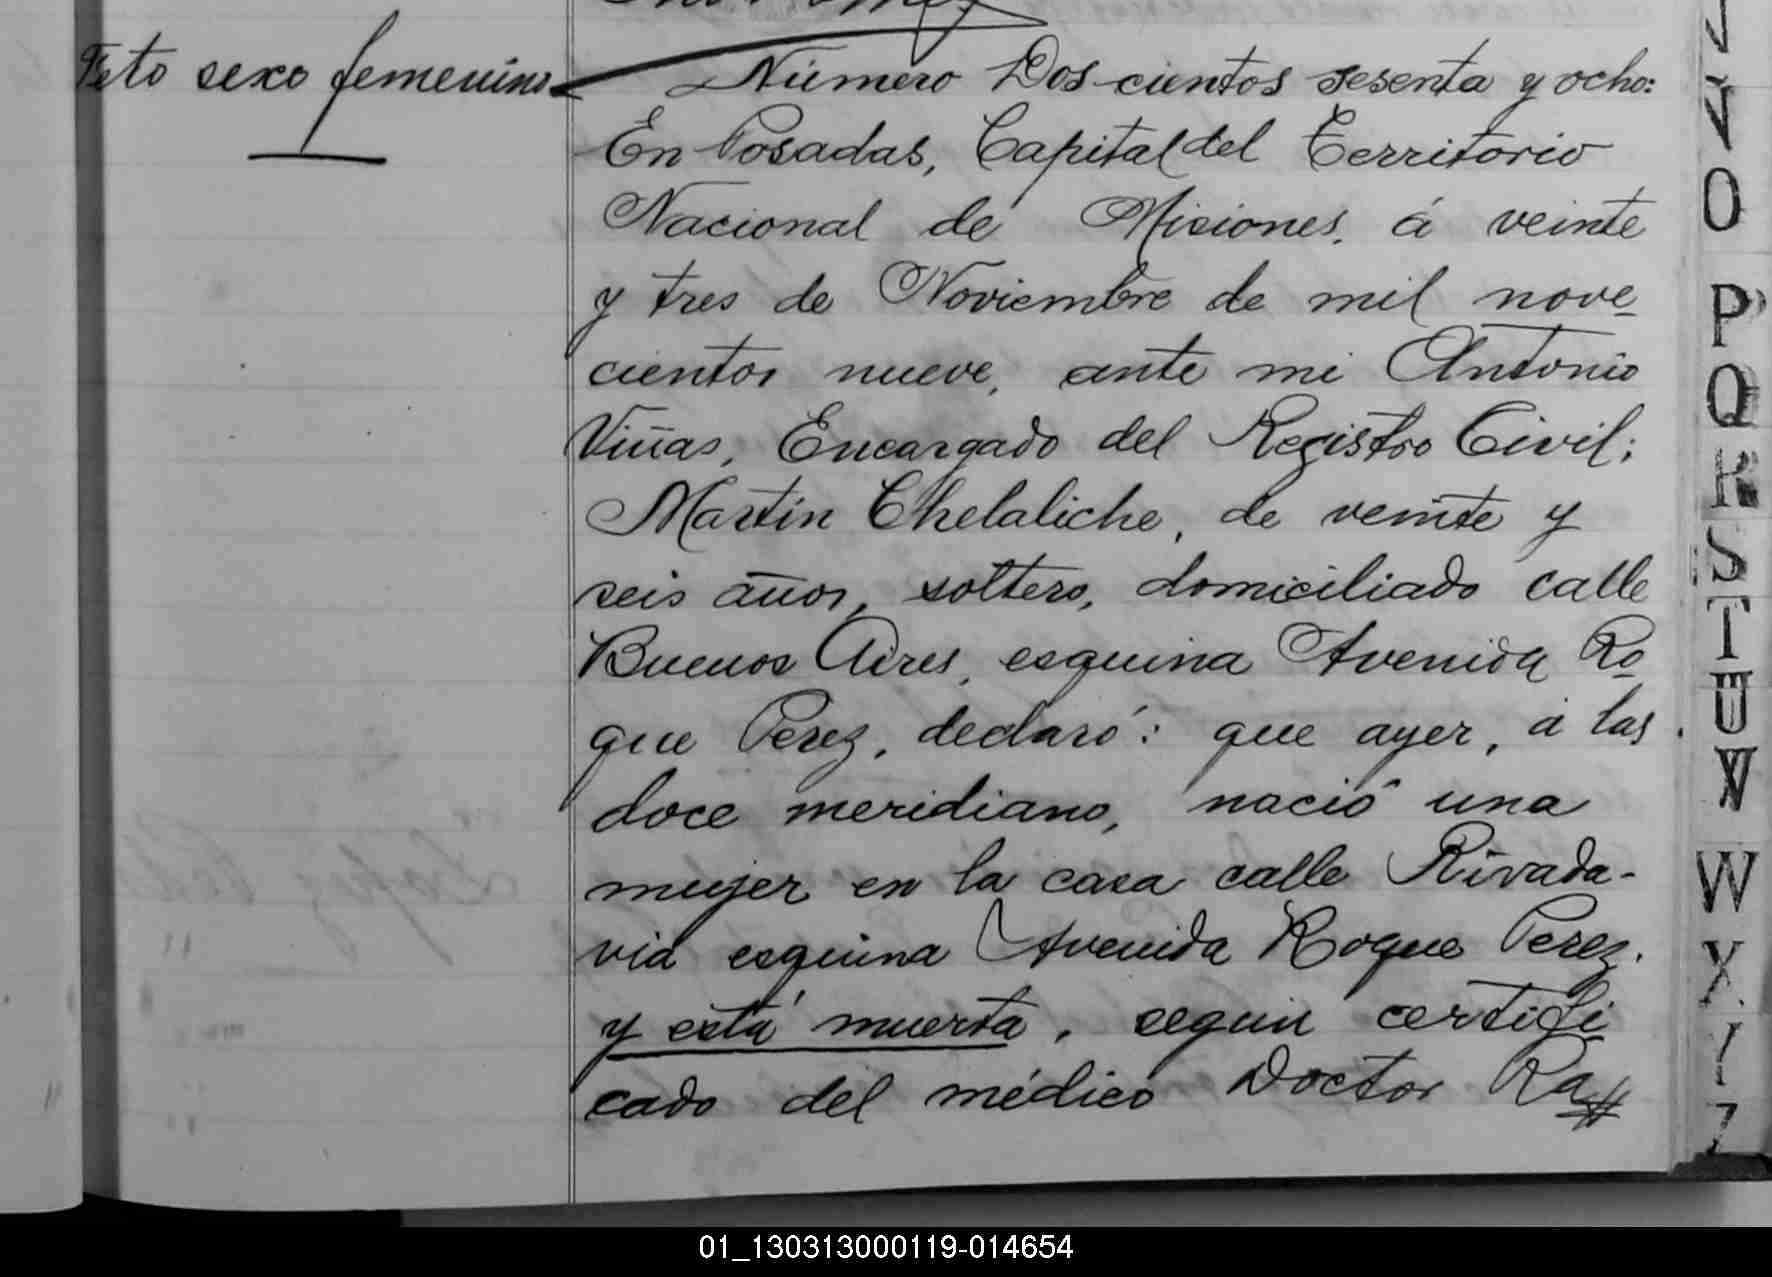 Feto sexo femenino
Número Dos cientos sesenta y ocho:
En Posadas, Capital del Territorio
Nacional de Misiones, á veinte
y tres de Noviembre de mil nove
cientos nueve, ante mi Antonio
Viñas, Encargado del Registro Civil;
Martín Chelaliche, de veinte y
seis años, soltero, domiciliado calle
Buenos Aires, esquina Avenida Ro
que Perez, declaró: que ayer, á las
doce meridiano, nació una
mujer en la casa calle Rivada-
via esquina Avenida Roque Perez.
y está muerta, segun certifi
cado del médico Doctor Ra
N
O
P
Q
R
S
T
U
V
W
X
Y
Z
01_130313000119-014654